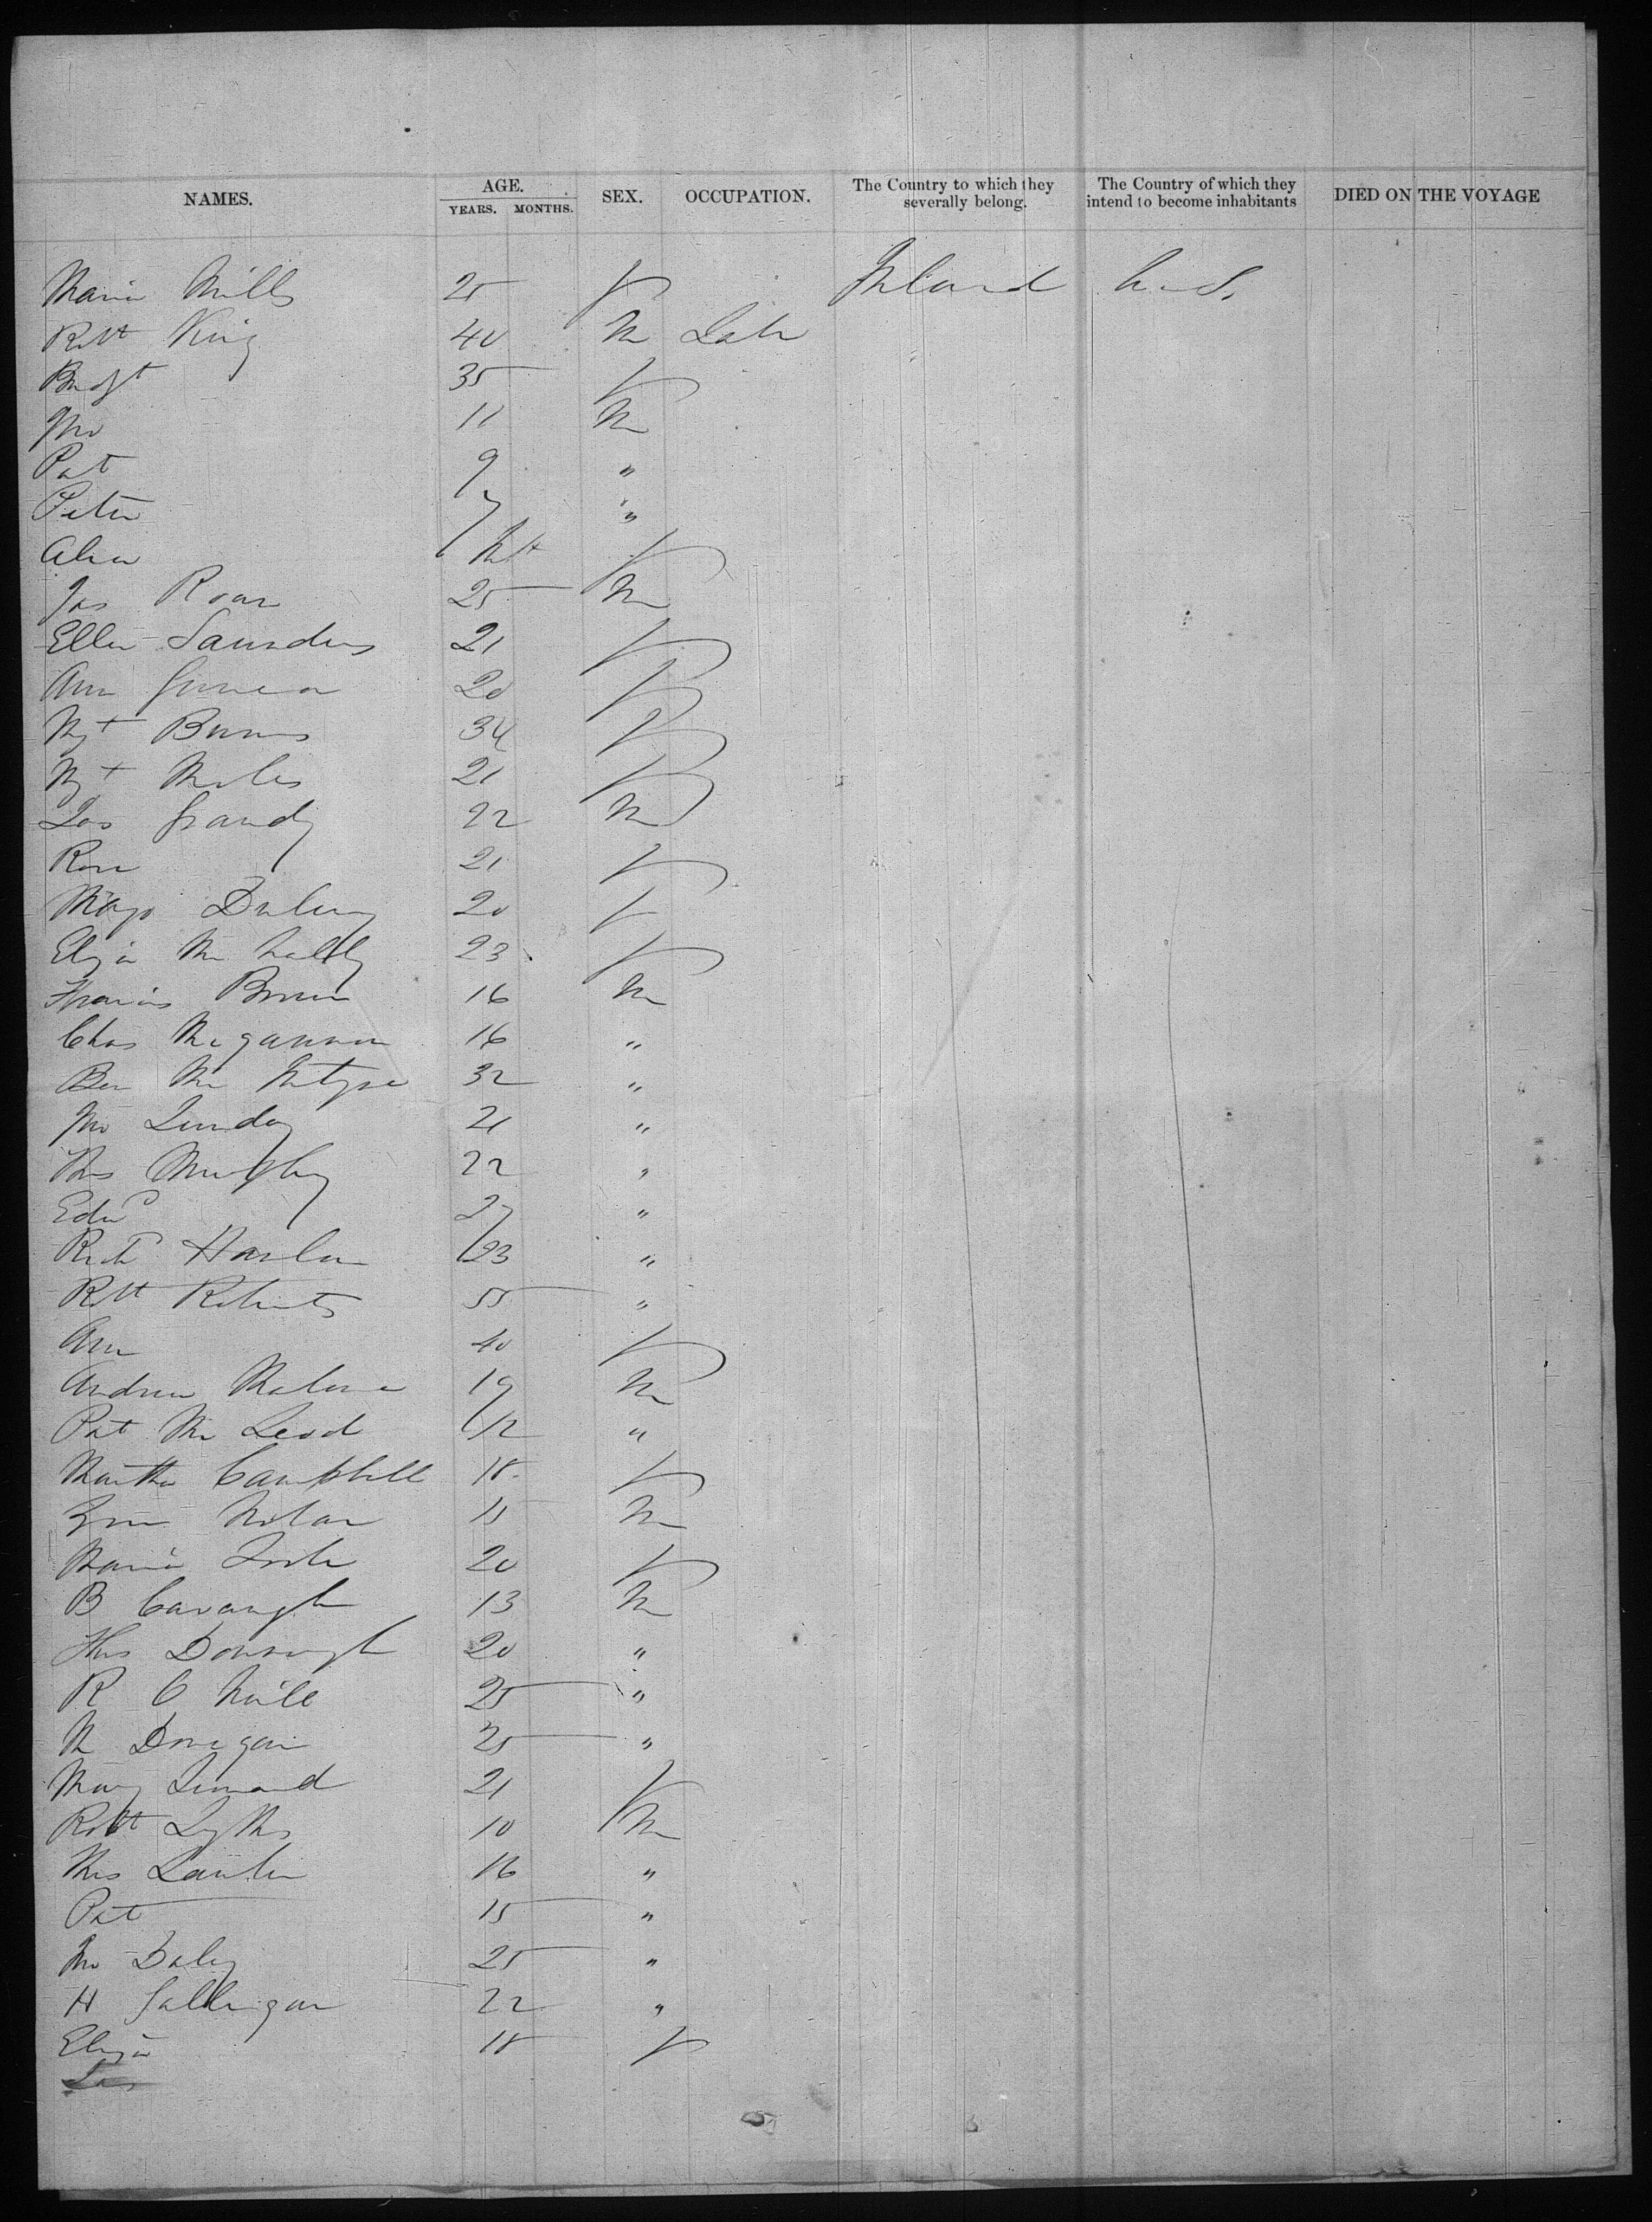 NAMES. AGE. YEARS. MONTHS. SEX. OCCUPATION. The Country to which they severally belong. The Country of which they intend to become inhabitants DIED ON THE VOYAGE
Maria Mills 25 F Ireland U.S.
Robt King 40 M Labr
Bridgt 35 F
Jno 11 M
Pat 9 "
Peter 7 "
Inft F
Jas Roan 25 M
Ellen Saunders 21 F
Ann 20 F
Mgt Burns 34 F
Mgt Miles 21 F
Jas Grandy 22 M
Rose 21 F
20 F
Eliza McNally 23 F
Francis 16 M
Chas McGannon 16 "
Ben McIntyre 32 "
Jno Lunday 21 "
Thos Murphy 22 "
Edwd 27 "
Richd Harlan 23 "
Robt Roberts 55 "
Ann 40 F
Andrew Malone 19 M
Pat McLeod 12 "
Martha Campbell 18 F
Nolan 15 M
Maria 20 F
B Cavanagh 13 M
Thos Donnough 20 "
R O Neill 25 "
M Donegan 25 "
Mary Lennard 21 F
Robt 10 M
Thos Lawler 16 "
Pat 15 "
Jno Daley 25 "
H Galligan 22 "
Eliza 18 F
Jas